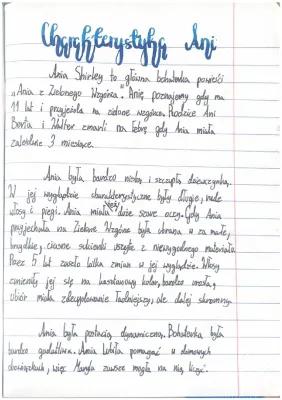 Charakterystyka Ani
Ania Shirley to główna bohaterka powieści
„Ania z Zielonego Wzgórza". Anię poznajemy gdy ma
11 lat i przyjeżdża na zielone wzgórze. Rodzice Ani
Berta i Walter zmarli na febrę gdy Ania miała
zaledwie 3 miesiące.
Ania była bardzo niską i szczupłą dziewczynką.
W jej wyglądzie charakterystyczne były długie, rude
włosy i piegi. Ania miała też duże szare oczy. Gdy Ania
przyjechała na Zielone Wzgórze była ubrana w za małe,
brzydkie, ciasne sukienki uszyte z niewygodnego materiału.
Przez 5 lat zaszło kilka zmian w jej wyglądzie. Włosy
zmieniły jej się na kasztanowy kolor, bardzo urosła,
ubiór miała zdecydowanie ładniejszy, ale dalej skromny.
Ania była postacią dynamiczną. Bohaterka była
bardzo gadatliwa. Ania lubiła pomagać w domowych
obowiązkach, więc Maryla zawsze mogła na nią liczyć.